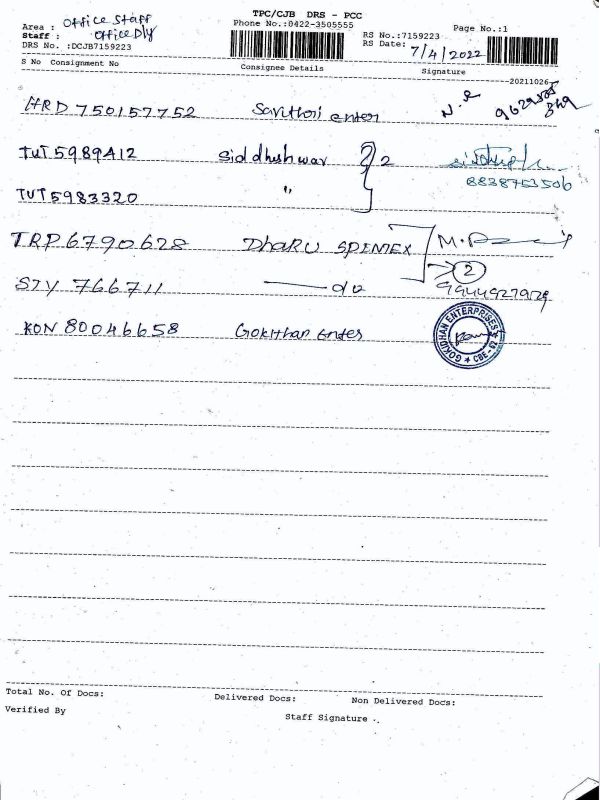 TPC/CJB DRS - PCC
Area : Office Staff
Phone No.:0422-3505555
Page No.:1
Staff : Office Dly
RS No.:7159223
DRS No. :DCJB7159223
RS Date: 7/4/2022
S No Consignment No
Consignee Details
Signature
20211026
HRD 750157752 Savithri enter
TUT 5989412 Siddheshwar 2
8838753506
TUT 5983320 "
TRP 6790628 Dharu SPINTEX
2
STY 766711 do
KON 80046658 Gokithan Enter
GOKIDHAN ENTERPRISES
Total No. Of Docs:
Delivered Docs:
Non Delivered Docs:
Verified By
Staff Signature